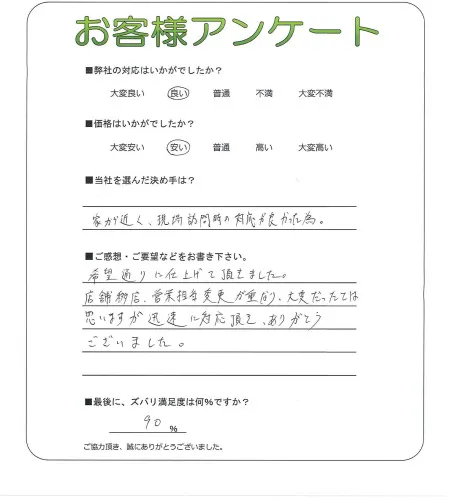 お客様アンケート
■弊社の対応はいかがでしたか？
大変良い 良い 普通 不満 大変不満
■価格はいかがでしたか？
大変安い 安い 普通 高い 大変高い
■当社を選んだ決め手は？
家が近く、現場訪問時の対応が良かった為。
■ご感想・ご要望などをお書き下さい。
希望通りに仕上げて頂きました。
店舗移店、営業担当変更が重なり、大変だったでは
思いますが迅速に対応頂き、ありがとう
ございました。
■最後に、ズバリ満足度は何%ですか？
90 %
ご協力頂き、誠にありがとうございました。